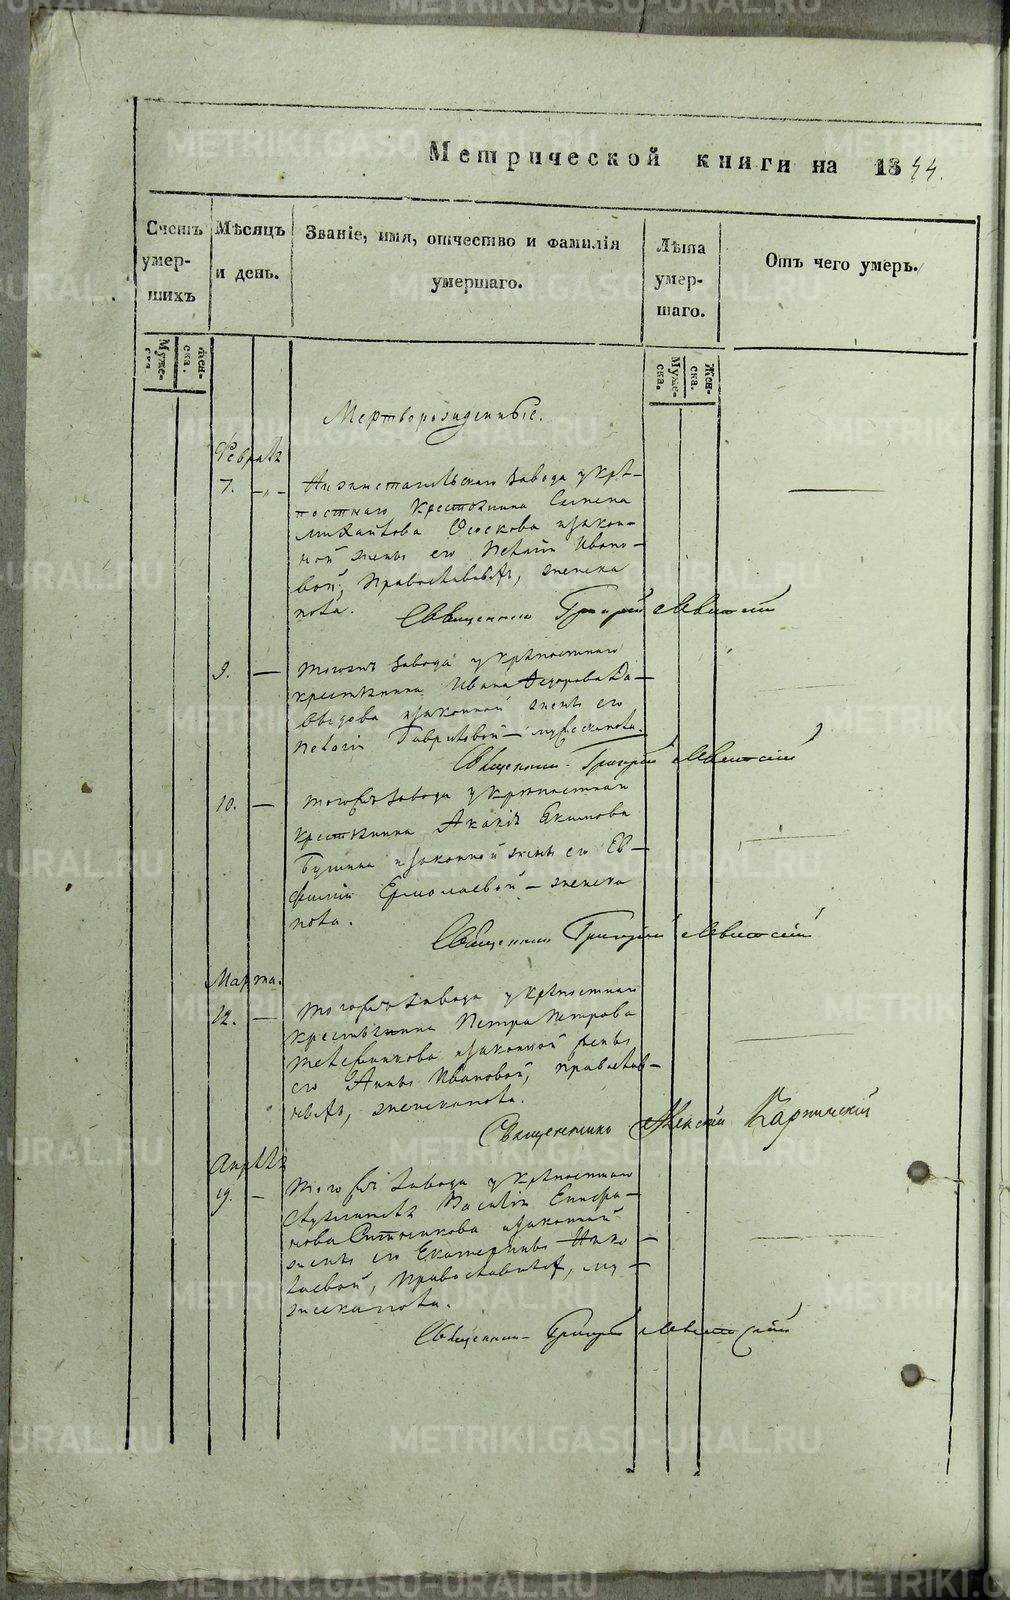 Метрической книги на 1844.
Счетъ умер- шихъ
Мѣсяцъ и день.
Званіе, имя, отчество и фамилія умершаго.
Лѣта умер- шаго.
Отъ чего умеръ.
Муже- ска.
Жен- ска.
Муже- ска.
Жен- ска.
Мертворожденные.
Февраля
7.
Нижнетагильскаго завода у крѣ-
постнаго крестьянина Семена
Михайлова изакон-
ной жены его Пелагіи Ивано-
вой, православныхъ, женска
пола.
Священникъ Григорій
9.
Тогожъ завода у крѣпостнаго
крестьянина Ивана Федорова Да-
выдова изаконной жены его
Пелагіи Гавриловой — мужеска пола.
Священникъ Григорій
10.
Тогожъ завода у крѣпостнаго
крестьянина Акакія Екимова
изаконной жены его Ев-
фиміи Ермолаевой — женска
пола.
Священникъ Григорій
Марта.
12.
Тогожъ завода у крѣпостнаго
крестьянина Петра Петрова
изаконной жены
его Анны Ивановой, православ-
ныхъ, женска пола.
Священникъ Карпинскій
Апрѣля
19.
Тогожъ завода у крѣпостнаго
служителя Василія
Ситникова изаконной
жены его Екатерины Нико-
лаевой, православныхъ, му-
жеска пола.
Священникъ Григорій
METRIKI.GASO-URAL.RU